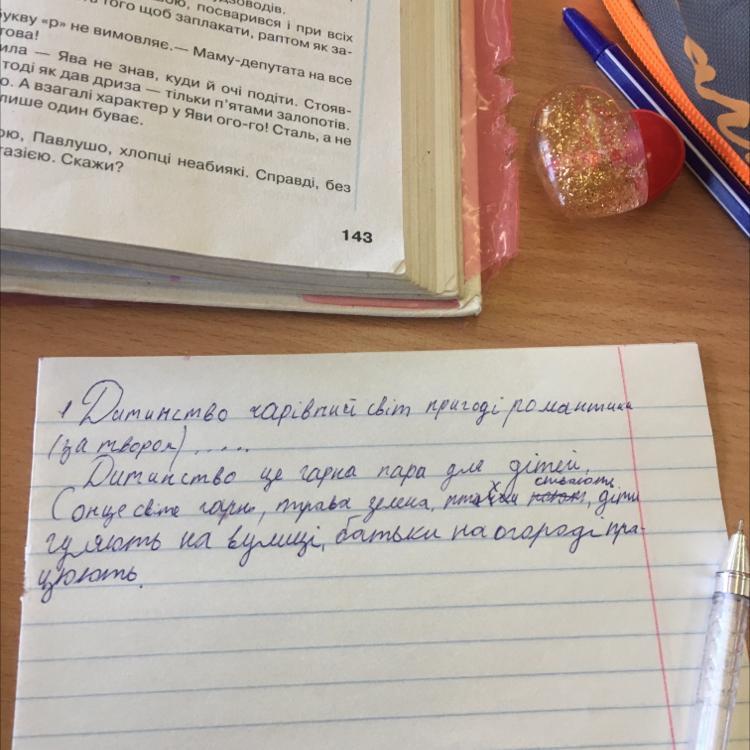 посварився і при всіх
того щоб заплакати, раптом як за-
букву «р» не вимовляє.— Маму-депутата на все
това!
ила — Ява не знав, куди й очі подіти. Стояв-
тоді як дав дриза — тільки п'ятами залопотів.
о. А взагалі характер у Яви ого-го! Сталь, а не
лише один буває.
ою, Павлушо, хлопці неабиякі. Справді, без
тазією. Скажи?
143
1 Дитинство чарівний світ пригоді романтики
(за твором) .....
Дитинство це гарна пара для дітей.
Сонце світе гарно, трава зелена, співають, діти
гуляють на вулиці, батьки на огороді пра-
цюють.